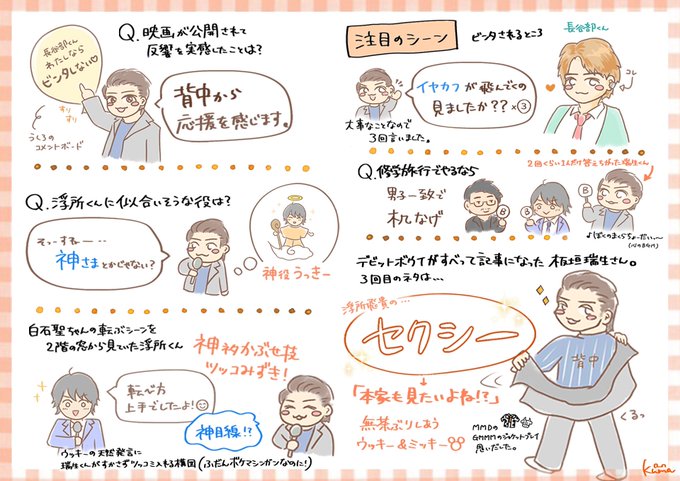 長谷部くん
わたしなら
ビンタしない♡
すり
すり
うしろの
コメントボード
Q. 映画が公開されて
反響を実感したことは?
背中から
応援を感じます。
Q. 浮所くんに似合いそうな役は?
そっすねー…
神さまとかじゃない?
神役うっきー
白石聖ちゃんの転ぶシーンを
2階の窓から見ていた浮所くん
神ネタかぶせ技
ツッコみずき!
転び方
上手でしたよ!
神目線!?
ウッキーの天然発言に
瑞生くんがすかさずツッコミ入れる構図(ふだんボケマシンガンなのに!)
注目のシーン
ビンタされるところ
長谷部くん
コレ
イヤカフが飛んでくの
見ましたか??×③
大事なことなので
3回言いました。
Q. 修学旅行でやるなら
2回くらい1人だけ答えちがった瑞生くん
男子一致で
まくらなげ
B
B
B
♪ぼくのまくらちょーだい〜
デビットボウイがすべって記事になった板垣瑞生さん。
3回目のネタは…
浮所飛貴の…
セクシー
「本家も見たいよね!?」
無茶ぶりしあう
ウッキー&ミッキー
MMDの
GMMMのジャケットプレイ
思いだした。
背中
くるっ
an
kuma